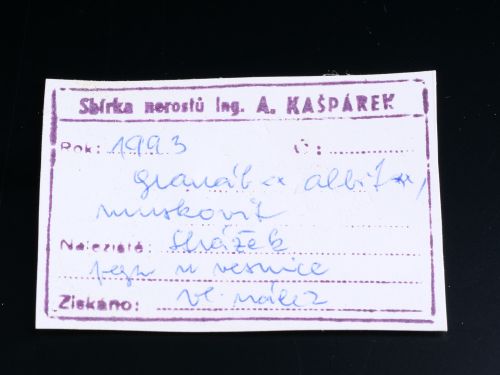 Sbírka nerostů Ing. A. KAŠPÁREK
Rok: 1993 Č:
granát a albit,
muskovit
Naleziště: Strážek
pegm u vesnice
Získáno: vl. nález